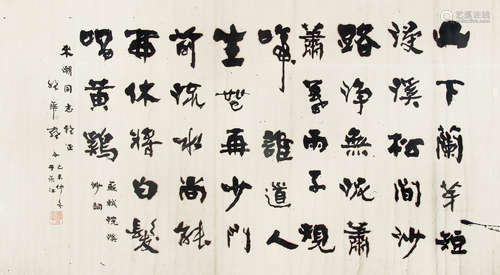 山下蘭芽短
浸溪松間沙
路淨無泥蕭
蕭暮雨子規
啼誰道人
生無再少門
前流水尚能
西休將白髮
唱黃鷄
蘇軾浣溪
沙詞
同志